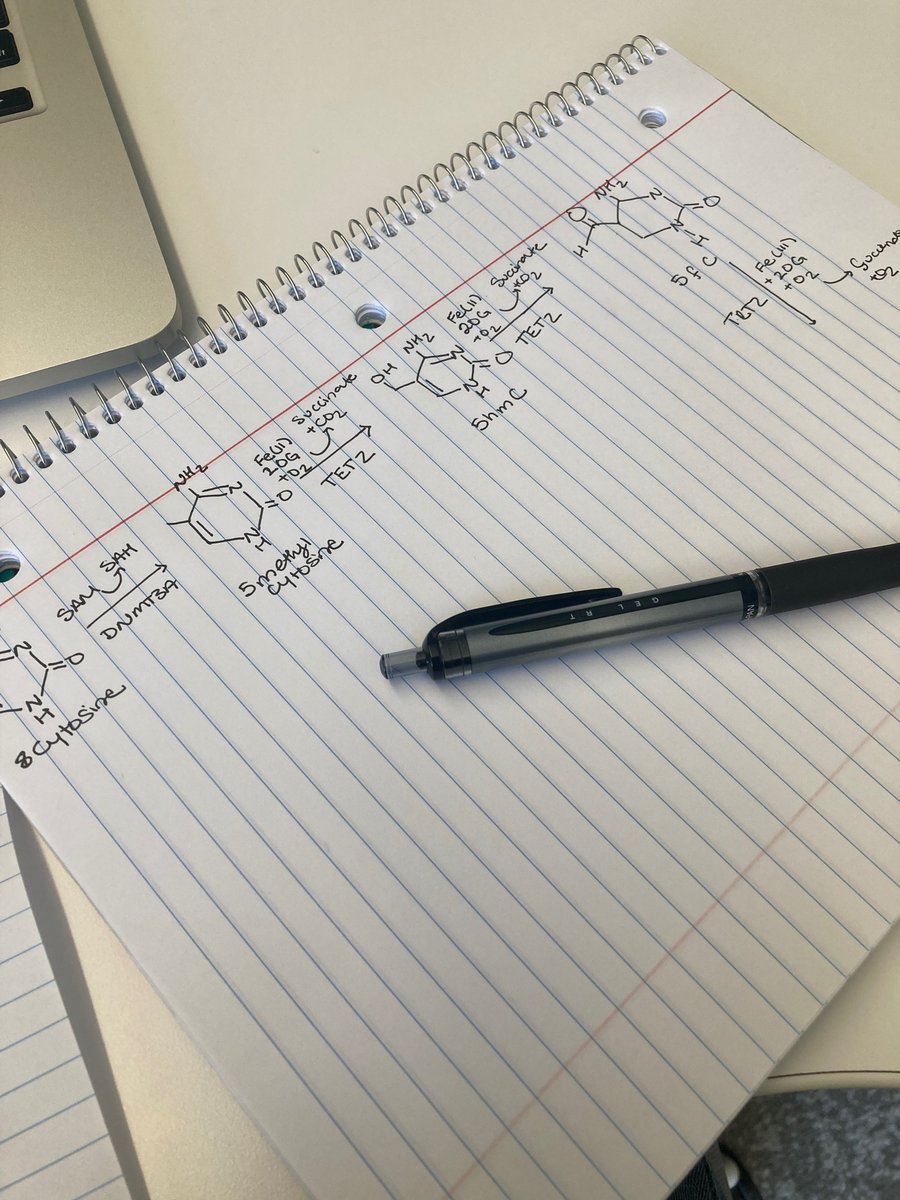 N
O
N
H
8 Cytosine
SAM SAH
DNMT3A
NH2
N
O
N
H
5methyl
Cytosine
Fe(II)
2OG
+O2
Succinate
+CO2
TET2
OH
NH2
N
O
N
H
5hmC
Fe(II)
2OG
+O2
Succinate
+CO2
TET2
O
H
NH2
N
O
N
H
5fC
TET2
Fe(II)
+2OG
+O2
GEL RT